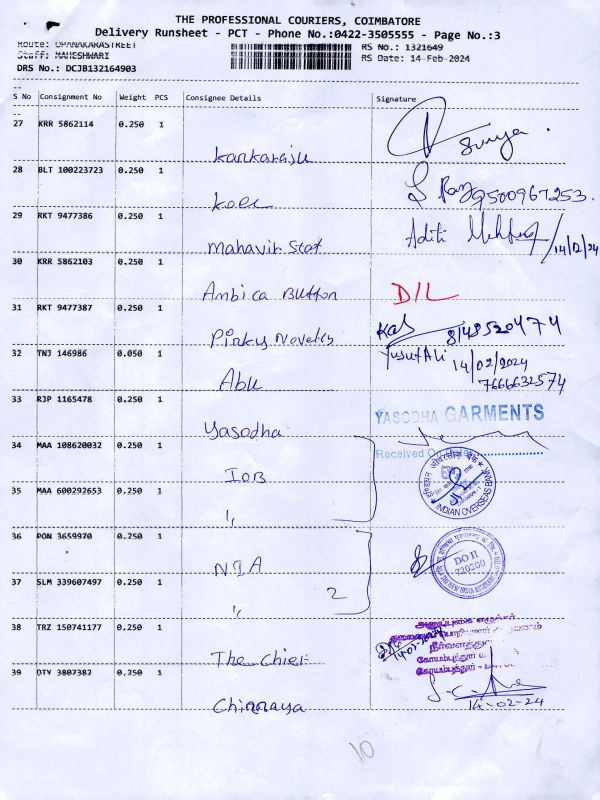 THE PROFESSIONAL COURIERS, COIMBATORE
Delivery Runsheet - PCT - Phone No.:0422-3505555 - Page No.:3
Route: OPANAKARASTREET
RS No.: 1321649
Staff: MAHESHWARI
RS Date: 14-Feb-2024
DRS No.: DCJB132164903
S No Consignment No Weight PCS Consignee Details Signature
27 KRR 5862114 0.250 1
Kankaraju Surya
28 BLT 100223723 0.250 1
9500967253.
29 RKT 9477386 0.250 1 Aditi
Mahavir Stat 14/2/24
30 KRR 5862103 0.250 1
Ambica Button D/L
31 RKT 9477387 0.250 1
Pinky Novelts
32 TNJ 146986 0.050 1 Yusuf Ali 14/02/2024
Abu 7666632574
33 RJP 1165478 0.250 1
Yasodha YASODHA GARMENTS
34 MAA 108620032 0.250 1 Received On
IOB
35 MAA 600292653 0.250 1 INDIAN OVERSEAS BANK
"
36 PON 3659970 0.250 1
N.I.A DO II 720200
37 SLM 339607497 0.250 1
" 2
38 TRZ 150741177 0.250 1
The Chief
39 OTY 3807382 0.250 1
Chinnaya 14-02-24
10